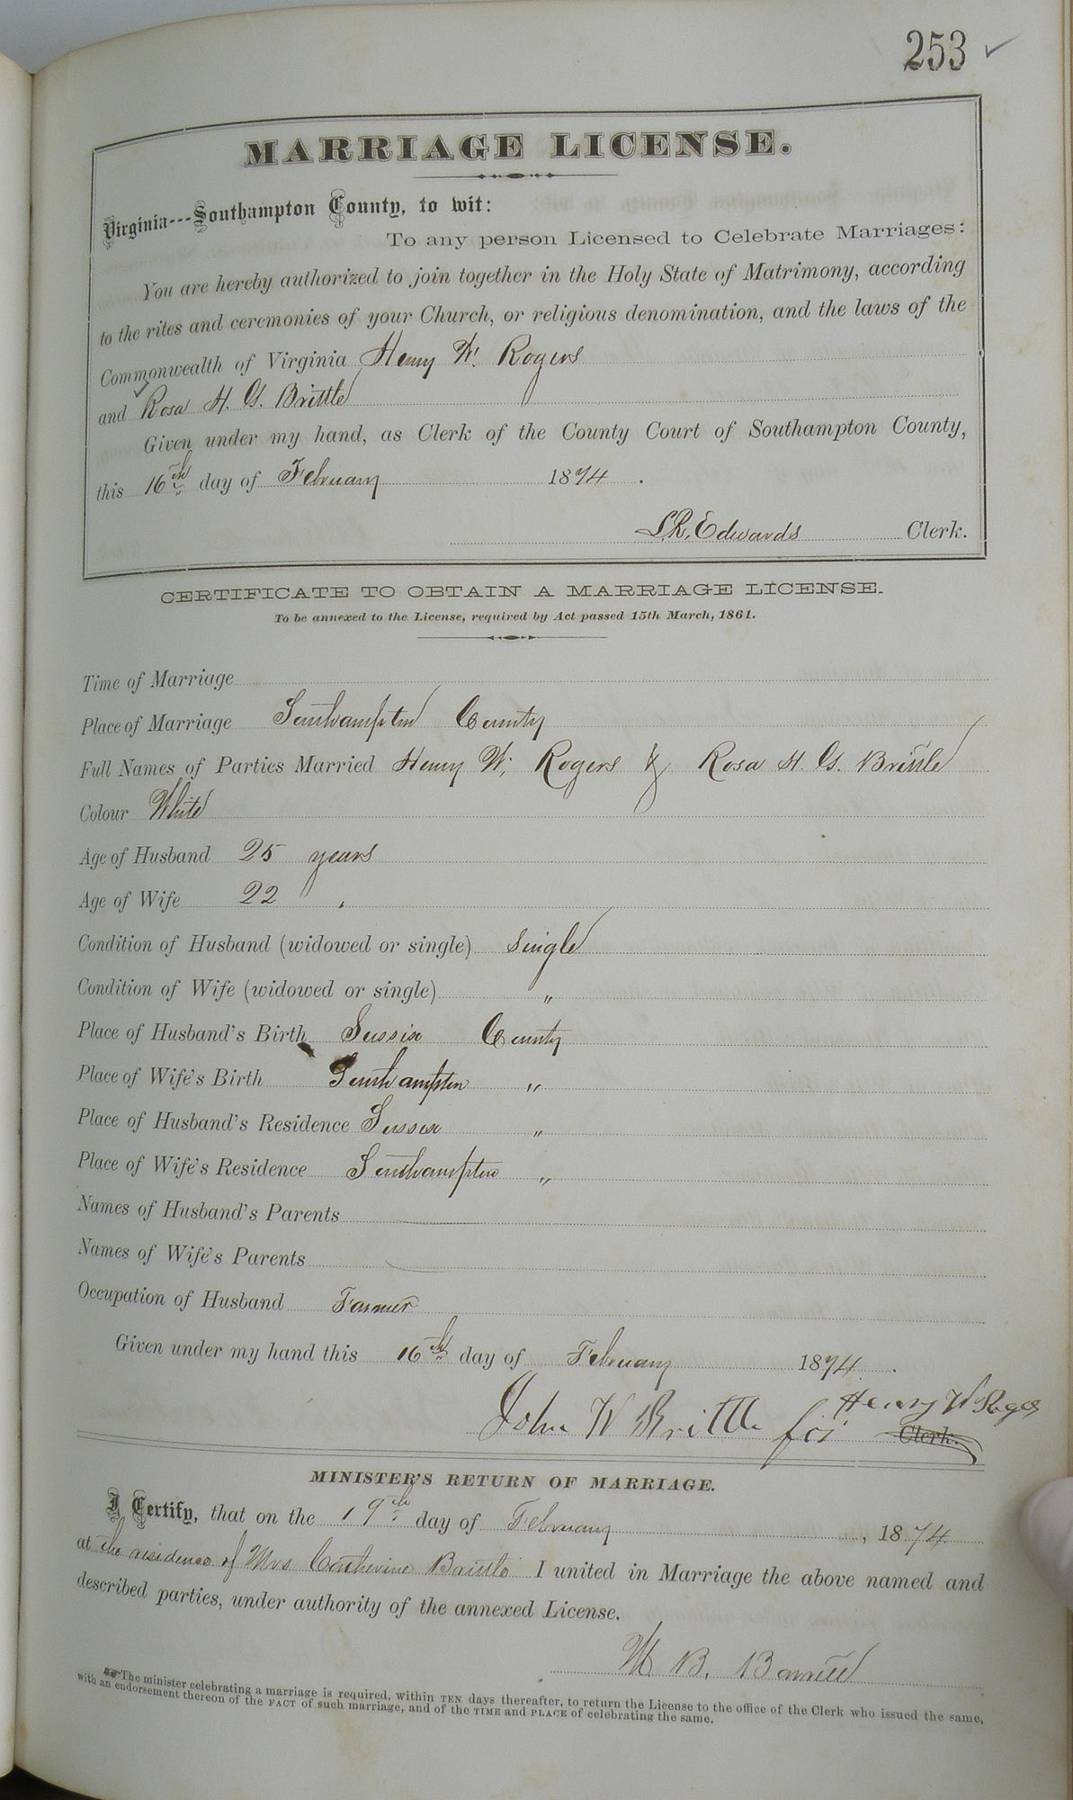 253 ✓
MARRIAGE LICENSE.
Virginia---Southampton County, to wit:
To any person Licensed to Celebrate Marriages:
You are hereby authorized to join together in the Holy State of Matrimony, according
to the rites and ceremonies of your Church, or religious denomination, and the laws of the
Commonwealth of Virginia Henry W. Rogers
and Rosa H. G. Brittle
Given under my hand, as Clerk of the County Court of Southampton County,
this 16th day of February 1874.
L. R. Edwards Clerk.
CERTIFICATE TO OBTAIN A MARRIAGE LICENSE.
To be annexed to the License, required by Act passed 15th March, 1861.
Time of Marriage
Place of Marriage Southampton County
Full Names of Parties Married Henry W. Rogers & Rosa H. G. Brittle
Colour White
Age of Husband 25 years
Age of Wife 22 "
Condition of Husband (widowed or single) Single
Condition of Wife (widowed or single) "
Place of Husband's Birth Sussex County
Place of Wife's Birth Southampton "
Place of Husband's Residence Sussex "
Place of Wife's Residence Southampton "
Names of Husband's Parents
Names of Wife's Parents
Occupation of Husband Farmer
Given under my hand this 16th day of February 1874.
John W Brittle for Henry W Rogers
Clerk.
MINISTER'S RETURN OF MARRIAGE.
I Certify, that on the 19th day of February, 1874
at the residence of Mrs Catherine Brittle I united in Marriage the above named and
described parties, under authority of the annexed License.
B.
The minister celebrating a marriage is required, within TEN days thereafter, to return the License to the office of the Clerk who issued the same,
with an endorsement thereon of the FACT of such marriage, and of the TIME and PLACE of celebrating the same.